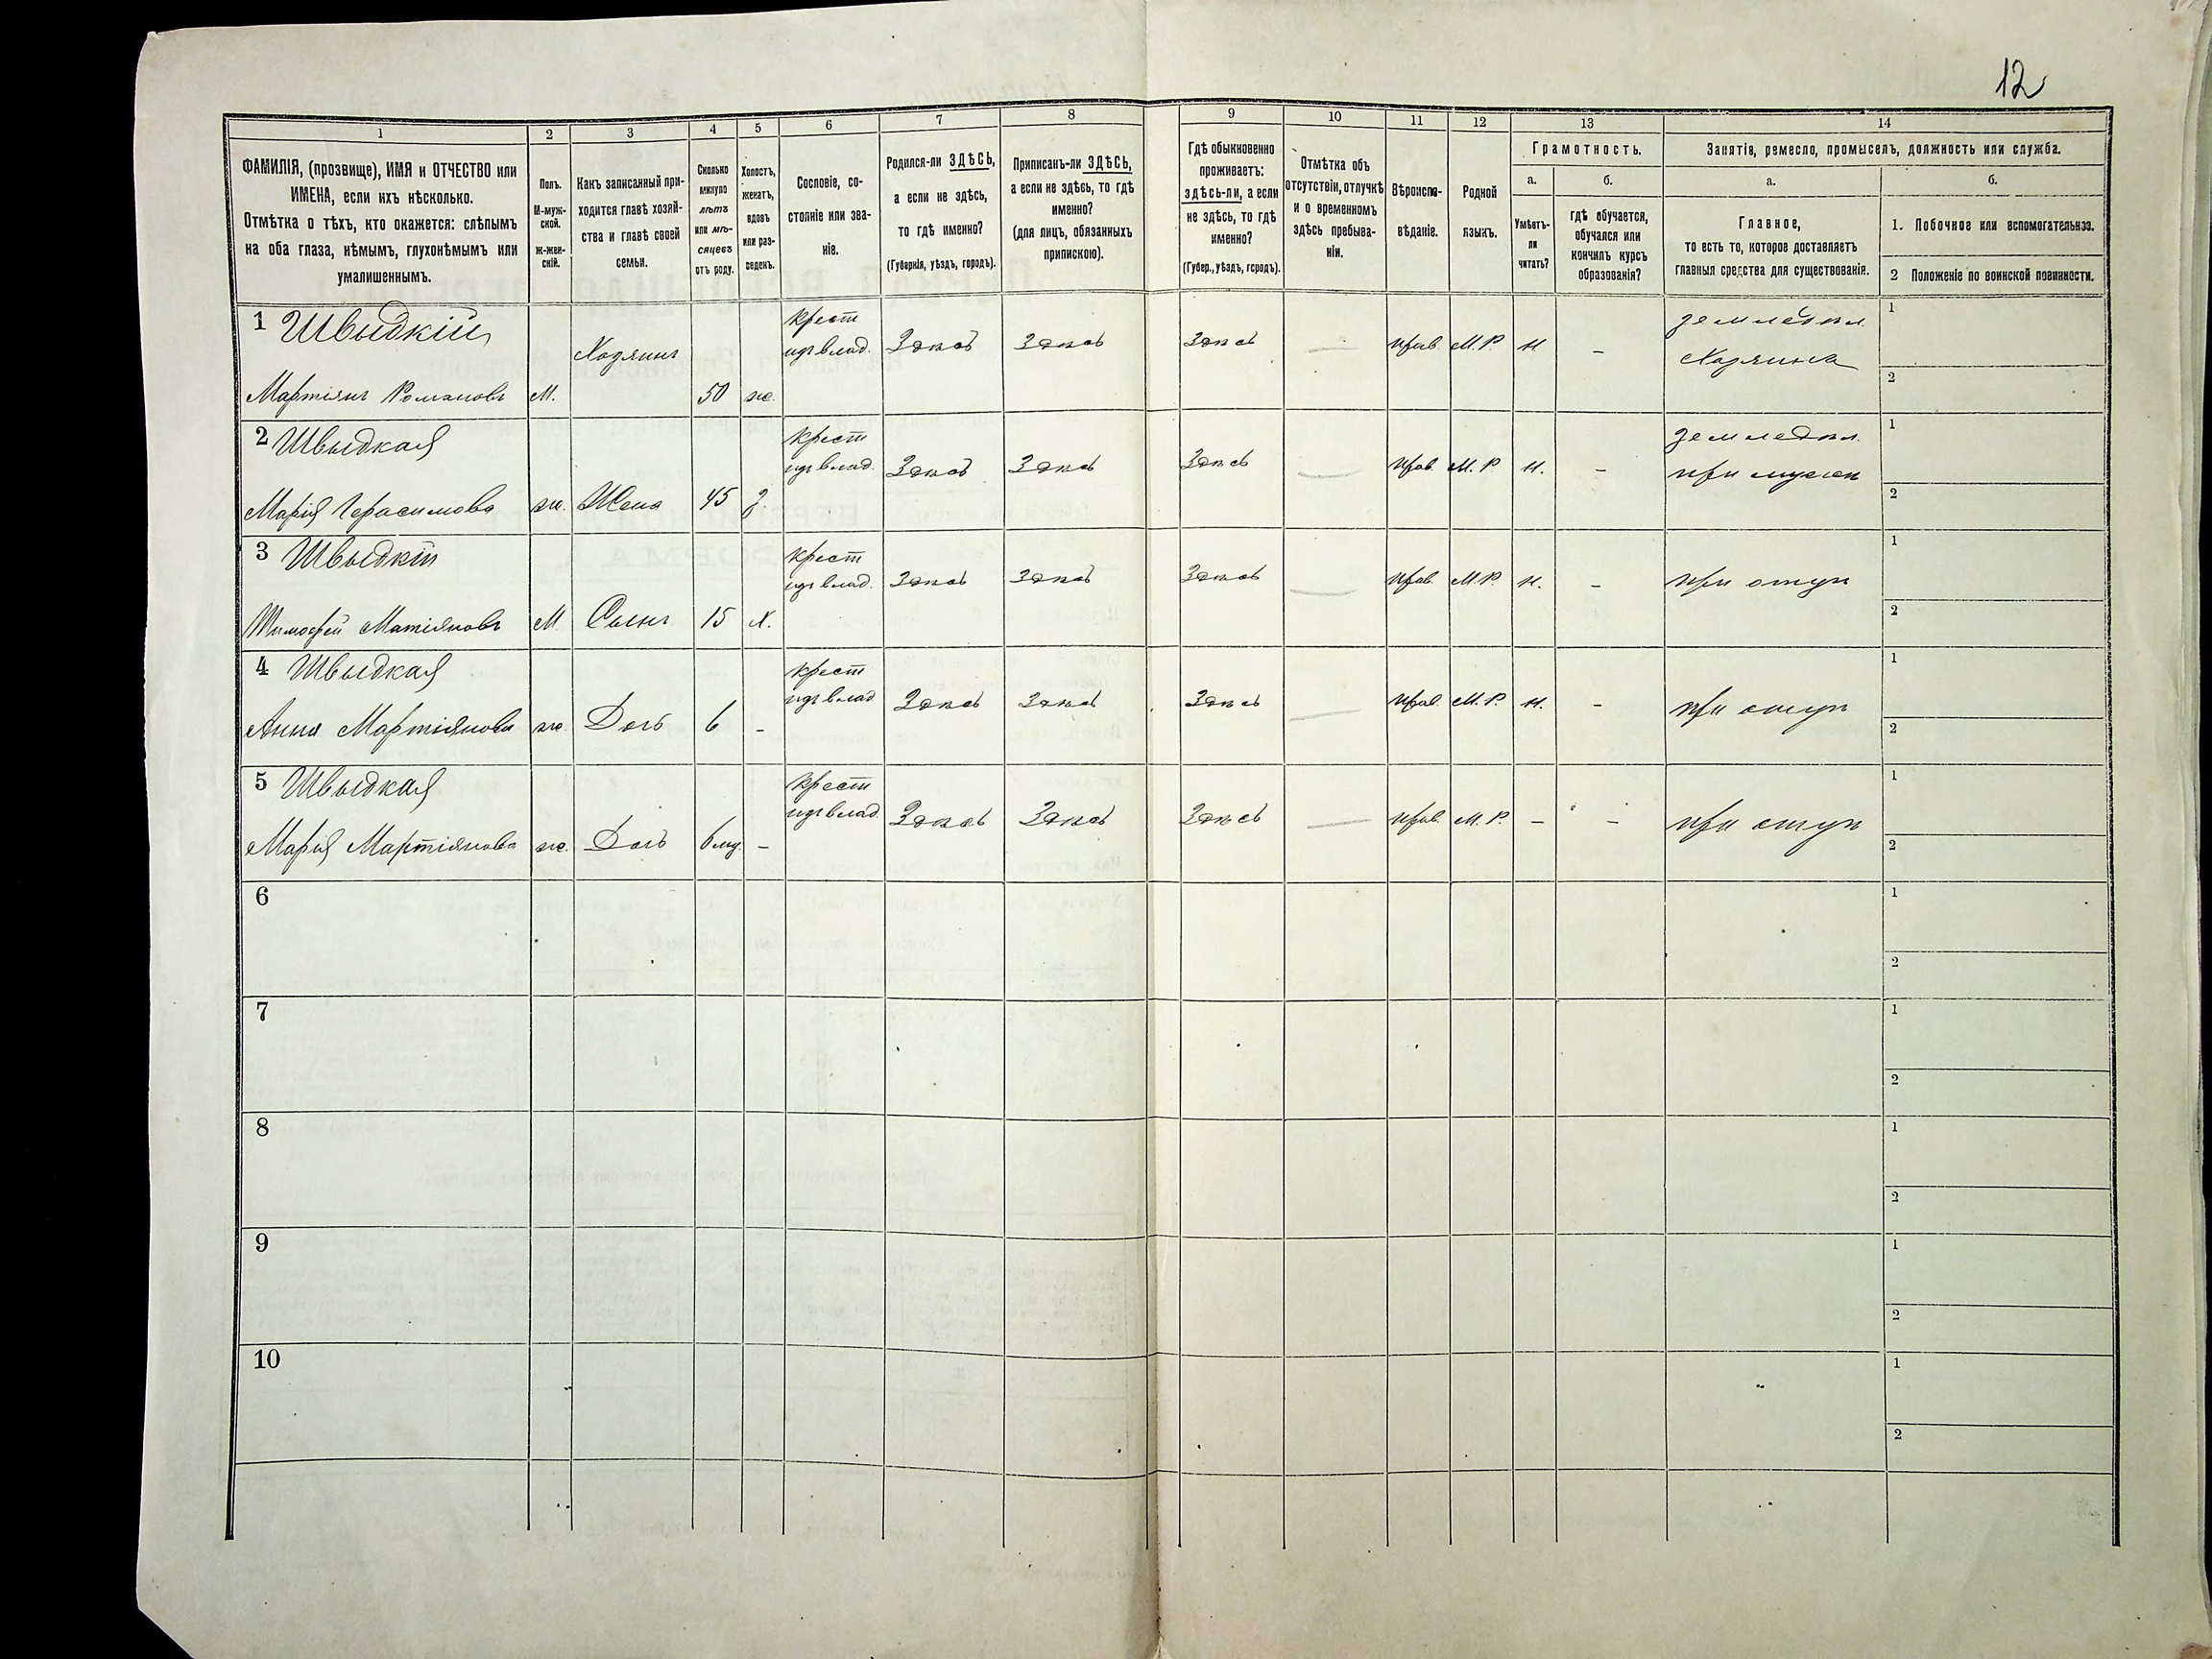 12
1 2 3 4 5 6 7 8 9 10 11 12 13 14
ФАМИЛІЯ, (прозвище), ИМЯ и ОТЧЕСТВО или
ИМЕНА, если ихъ нѣсколько.
Отмѣтка о тѣхъ, кто окажется: слѣпымъ
на оба глаза, нѣмымъ, глухонѣмымъ или
умалишеннымъ.
Полъ.
М-муж-
ской.
ж-жен-
скій.
Какъ записанный при-
ходится главѣ хозяй-
ства и главѣ своей
семьи.
Сколько
минуло
лѣтъ
или мѣ-
сяцевъ
отъ роду.
Холостъ,
женатъ,
вдовъ
или раз-
веденъ.
Сословіе, со-
стояніе или зва-
ніе.
Родился-ли ЗДѢСЬ,
а если не здѣсь,
то гдѣ именно?
(Губернія, уѣздъ, городъ).
Приписанъ-ли ЗДѢСЬ,
а если не здѣсь, то гдѣ
именно?
(для лицъ, обязанныхъ
припискою).
Гдѣ обыкновенно
проживаетъ:
здѣсь-ли, а если
не здѣсь, то гдѣ
именно?
(Губер., уѣздъ, городъ).
Отмѣтка объ
отсутствіи, отлучкѣ
и о временномъ
здѣсь пребыва-
ніи.
Вѣроиспо-
вѣданіе.
Родной
языкъ.
Грамотность.
а.
Умѣетъ-
ли
читать?
б.
гдѣ обучается,
обучался или
кончилъ курсъ
образованія?
Занятіе, ремесло, промыселъ, должность или служба.
а.
Главное,
то есть то, которое доставляетъ
главныя средства для существованія.
б.
1. Побочное или вспомогательное.
2 Положеніе по воинской повинности.
1 Швыдкій
Мартіянъ Романовъ М. Хозяинъ 50 ж. крест
изъ влад. Здѣсь Здѣсь Здѣсь — прав. М.Р. н — земледѣл.
Хозяинъ 1
2
2 Швыдкая
Марія Герасимова ж. Жена 45 з. крест
изъ влад. Здѣсь Здѣсь Здѣсь — прав. М.Р. н. — земледѣл.
при мужѣ 1
2
3 Швыдкій
Тимофей Матіяновъ М Сынъ 15 х. крест
изъ влад. Здѣсь Здѣсь Здѣсь — прав. М.Р. н. — при отцѣ 1
2
4 Швыдкая
Анна Мартіянова ж. Дочь 6 — крест
изъ влад Здѣсь Здѣсь Здѣсь — прав. М.Р. н. — при отцѣ 1
2
5 Швыдкая
Марія Мартіянова ж. Дочь 6 — крест
изъ влад. Здѣсь Здѣсь Здѣсь — прав. М.Р. — — при отцѣ 1
2
6 1
2
7 1
2
8 1
2
9 1
2
10 1
2